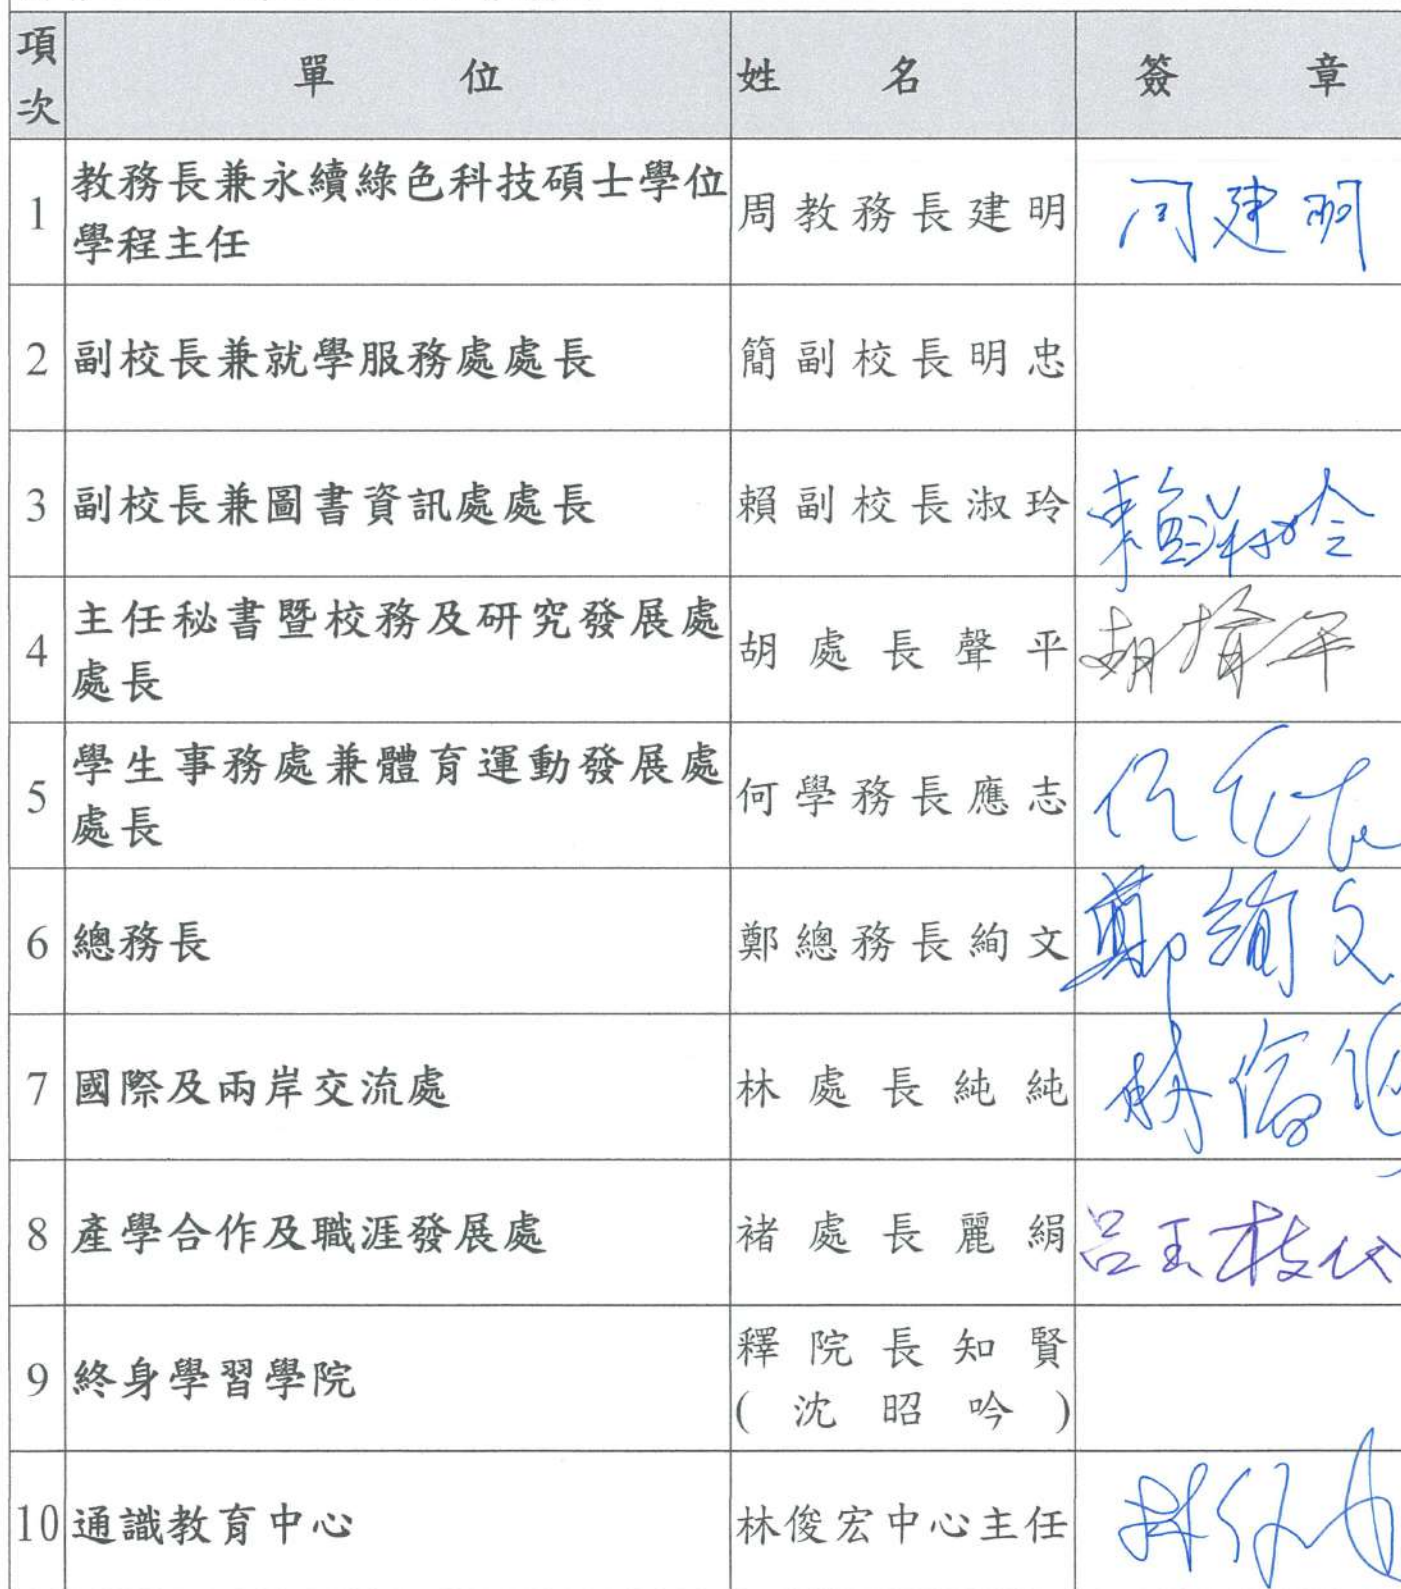 項次 單位 姓名 簽章
1 教務長兼永續綠色科技碩士學位學程主任 周教務長建明 周建明
2 副校長兼就學服務處處長 簡副校長明忠
3 副校長兼圖書資訊處處長 賴副校長淑玲 賴淑玲
4 主任秘書暨校務及研究發展處處長 胡處長聲平
5 學生事務處兼體育運動發展處處長 何學務長應志
6 總務長 鄭總務長絢文 鄭絢文
7 國際及兩岸交流處 林處長純純
8 產學合作及職涯發展處 褚處長麗絹 呂玉枝代
9 終身學習學院 釋院長知賢
(沈昭吟)
10 通識教育中心 林俊宏中心主任